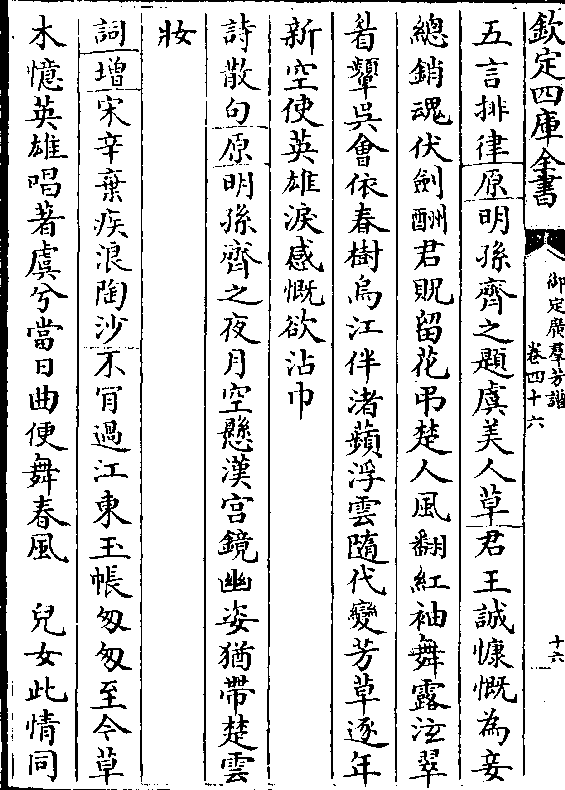 欽定四庫全書
御定廣羣芳譜
卷四十六
十六
五言排律原明孫齊之題虞美人草君王誠慷慨為妾
總銷魂伏劍酬君貺留花弔楚人風翻紅袖舞露泣翠
眉顰吳會依春樹烏江伴渚蘋浮雲隨代變芳草逐年
新空使英雄淚感慨欲沾巾
詩散句原明孫齊之夜月空懸漢宫鏡幽姿猶帶楚雲
妝
詞增宋辛棄疾浪陶沙不肎過江東玉帳匆匆至今草
木憶英雄唱著虞兮當日曲便舞春風　兒女此情同